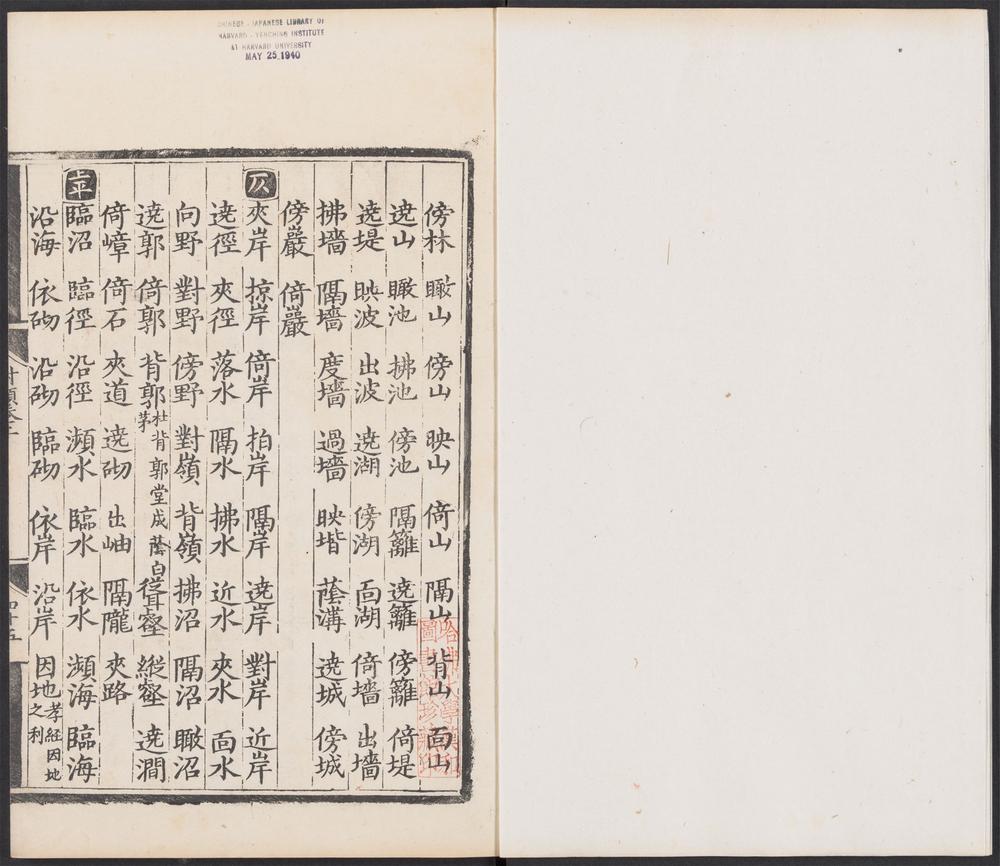 CHINESE - JAPANESE LIBRARY OF
HARVARD - YENCHING INSTITUTE
AT HARVARD UNIVERSITY
MAY 25 1940
傍林 瞰山 傍山 映山 倚山 隔山 背山 面山
遶山 瞰池 拂池 傍池 隔籬 遶籬 傍籬 倚堤
遶堤 映波 出波 遶湖 傍湖 面湖 倚墻 出墻
拂墻 隔墻 度墻 過墻 映堦 蔭溝 遶城 傍城
傍巖 倚巖
仄 夾岸 掠岸 倚岸 拍岸 隔岸 遶岸 對岸 近岸
遶徑 夾徑 落水 隔水 拂水 近水 夾水 面水
向野 對野 傍野 對嶺 背嶺 拂沼 隔沼 瞰沼
遶郭 倚郭 背郭 杜背郭堂成蔭白茅 聳壑 縱壑 遶澗
倚嶂 倚石 夾道 遶砌 出岫 隔隴 夾路
上平 臨沼 臨徑 沿徑 瀕水 臨水 依水 瀕海 臨海
沿海 依砌 沿砌 臨砌 依岸 沿岸 因地 孝經因地之利
對類卷三
四十五
哈佛大學漢和圖書館珍藏印